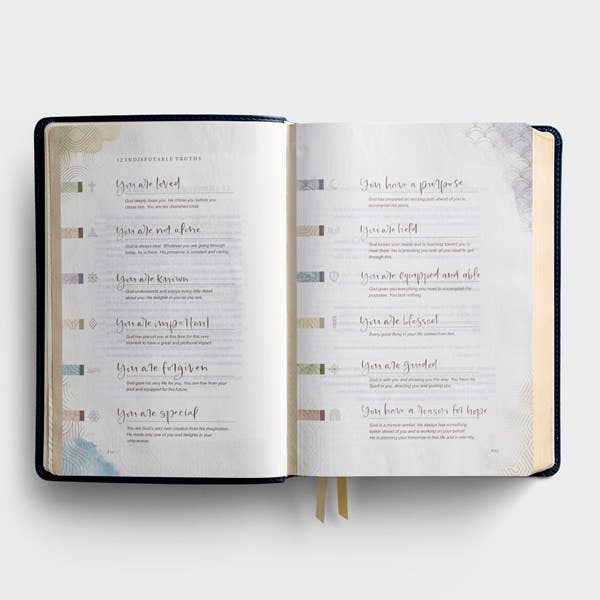 12 INDISPUTABLE TRUTHS
You are loved
God deeply loves you. He chose you before you
chose him. You are his cherished child.
You are not alone
God is always near. Whatever you are going through
today, he is there. His presence is constant and caring.
You are known
God understands and enjoys every little detail
about you. He delights in you as you are.
You are important
God has placed you at this time for this very
moment to have a great and profound impact.
You are forgiven
God gave his very life for you. You are free from your
past and equipped for the future.
You are special
You are God's very own creation from his imagination.
He made only one of you and delights in your
uniqueness.
You have a purpose
God has prepared an exciting path ahead of you to
accomplish his plans.
You are held
God knows your needs and is reaching toward you to
meet them. He is providing you with all you need to get
through this.
You are equipped and able
God gives you everything you need to accomplish his
purposes. You lack nothing.
You are blessed
Every good thing in your life comes from him.
You are guided
God is with you and showing you the way. You have his
Spirit in you, directing you and guiding you.
You have a reason for hope
God is a miracle worker. He always has something
better ahead of you and is working on your behalf.
He is planning your tomorrow in this life and in eternity.